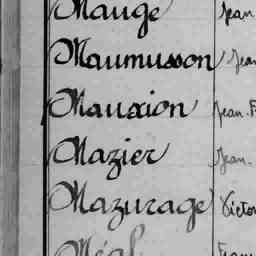 Mauge Jean
Maumusson Jean
Mauxion Jean F
Mazier Jean
Mazurage Victor